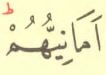 ط
اَمَانِيُّهُمْ